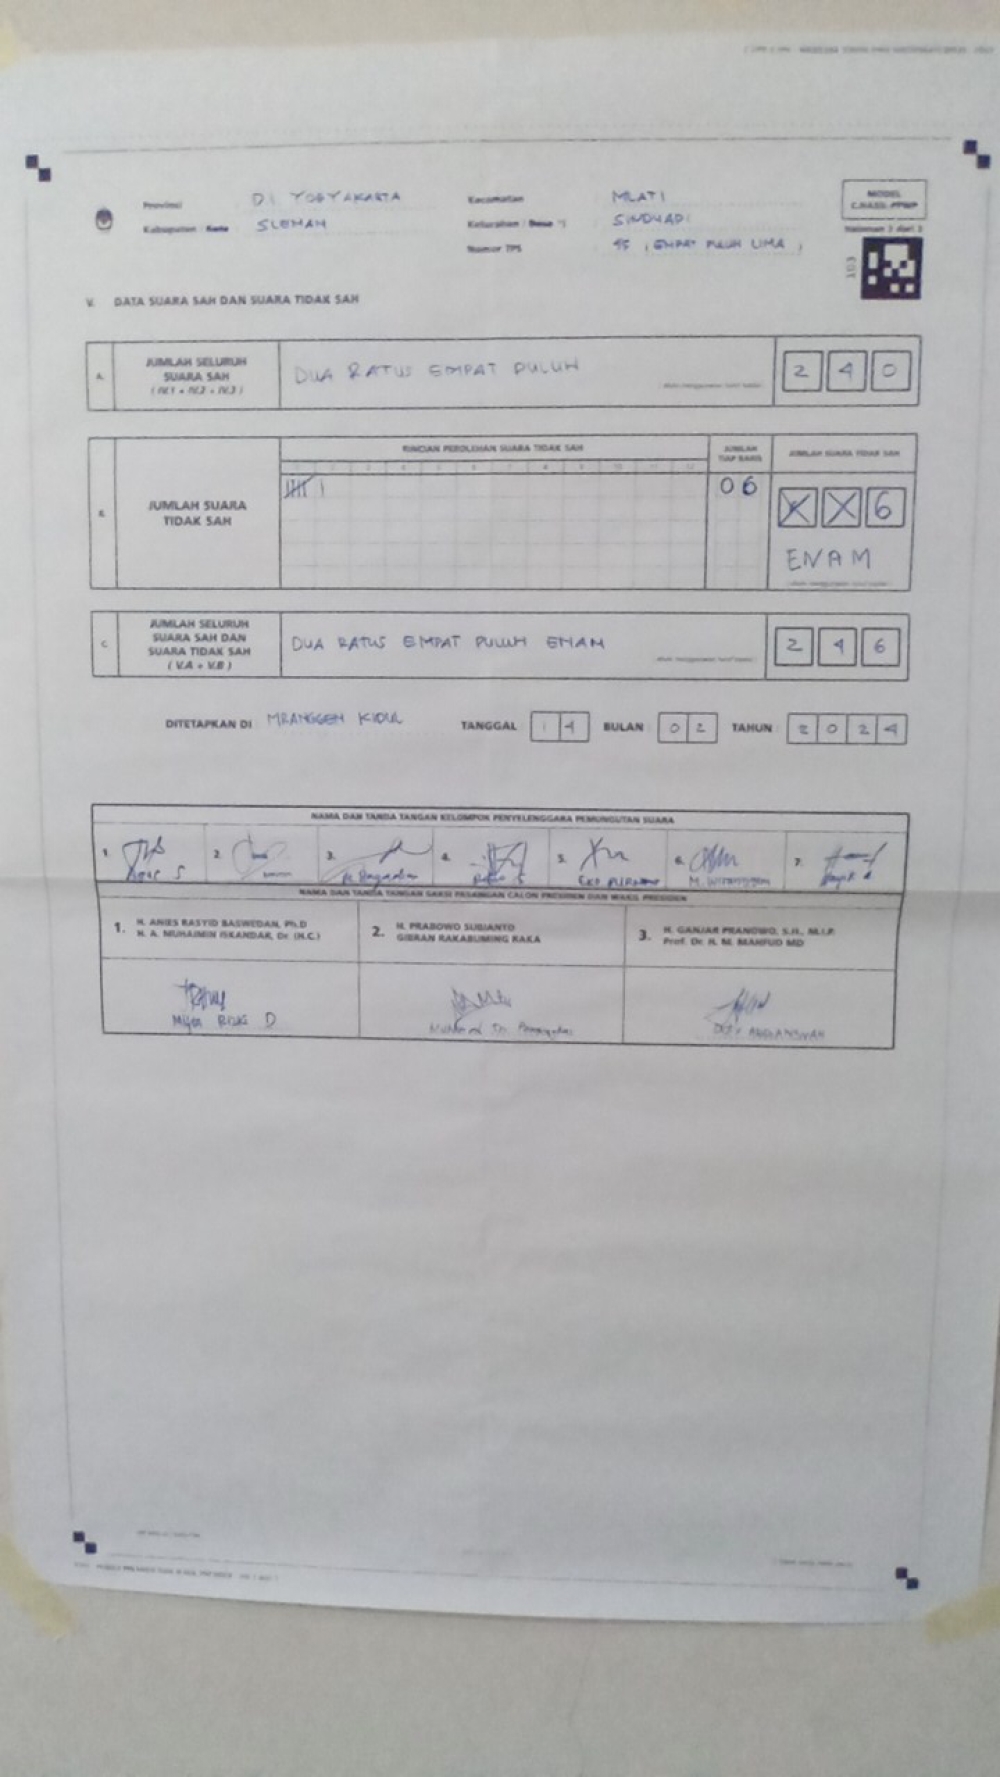 Provinsi D.I YOGYAKARTA
Kabupaten / Kota SLEMAN
Kecamatan MLATI
Kelurahan / Desa *) SINDUADI
Nomor TPS 45 (EMPAT PULUH LIMA)
MODEL
C.HASIL-PPWP
Halaman 3 dari 3
103
V. DATA SUARA SAH DAN SUARA TIDAK SAH
A. JUMLAH SELURUH
SUARA SAH
(IV.1 + IV.2 + IV.3)
DUA RATUS EMPAT PULUH
2 4 0
B. JUMLAH SUARA
TIDAK SAH
RINCIAN PEROLEHAN SUARA TIDAK SAH
JUMLAH
TIAP BARIS
JUMLAH SUARA TIDAK SAH
06
X X 6
ENAM
C. JUMLAH SELURUH
SUARA SAH DAN
SUARA TIDAK SAH
( V.A + V.B )
DUA RATUS EMPAT PULUH ENAM
2 4 6
DITETAPKAN DI MRANGGEN KIDUL TANGGAL 14 BULAN 02 TAHUN 2024
NAMA DAN TANDA TANGAN KELOMPOK PENYELENGGARA PEMUNGUTAN SUARA
1. 2. 3. 4. 5. 6. 7.
NAMA DAN TANDA TANGAN SAKSI PASANGAN CALON PRESIDEN DAN WAKIL PRESIDEN
1. H. ANIES RASYID BASWEDAN, Ph.D
H. A. MUHAIMIN ISKANDAR, Dr. (H.C.)
2. H. PRABOWO SUBIANTO
GIBRAN RAKABUMING RAKA
3. H. GANJAR PRANOWO, S.H., M.I.P.
Prof. Dr. H. M. MAHFUD MD